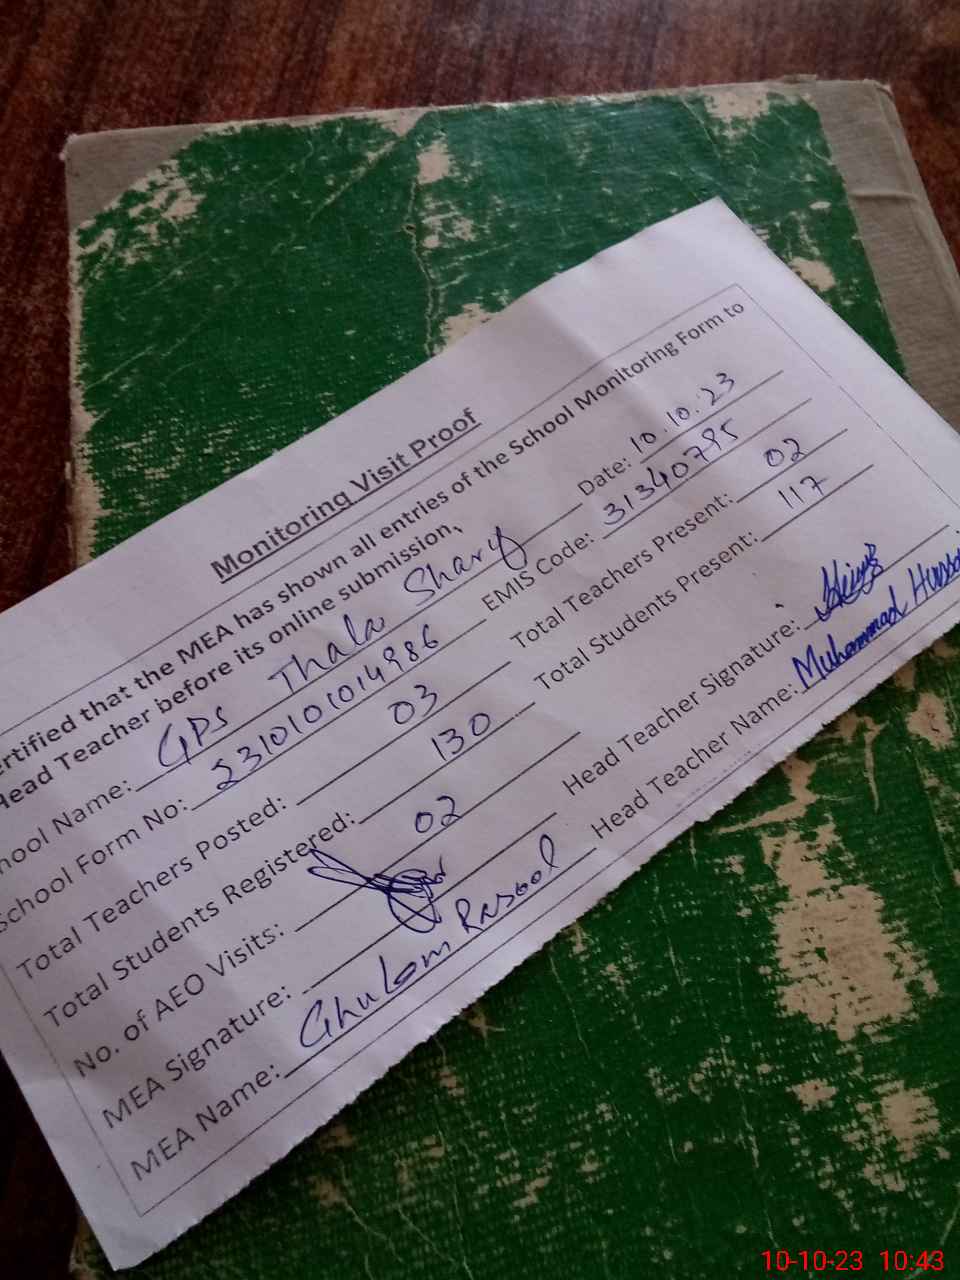 Monitoring Visit Proof
ertified that the MEA has shown all entries of the School Monitoring Form to
Head Teacher before its online submission.
hool Name: GPS Thala Sharif Date: 10.10.23
School Form No: 2310101014986 EMIS Code: 31340795
Total Teachers Posted: 03 Total Teachers Present: 02
Total Students Registered: 130 Total Students Present: 117
No. of AEO Visits: 02
MEA Signature: Head Teacher Signature:
MEA Name: Ghulam Rasool Head Teacher Name: Muhammad Hussai
10-10-23 10:43